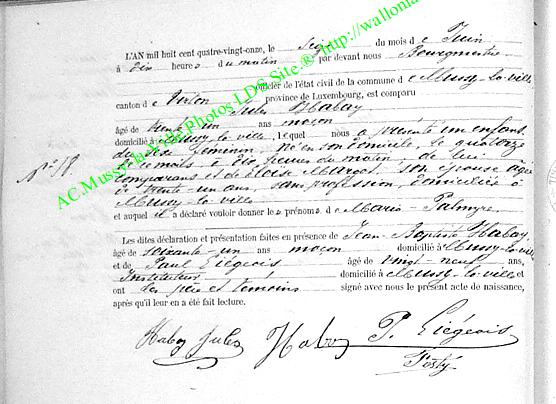 L'AN mil huit cent quatre-vingt-onze, le Seize du mois de Juin
à dix heures du matin par devant nous Bourgmestre
officier de l'état civil de la commune de Mussy-la-ville
canton de Virton province de Luxembourg, est comparu
Jules Habay
âgé de trente un ans maçon
domicilié à Mussy-la-ville, Lequel nous a présenté un enfant
du sexe féminin, né en son domicile, le quatorze
de ce mois à dix heures du matin, de lui
comparant et de son épouse âgée
de trente-un ans, sans profession, domiciliée à
Mussy-la-ville
et auquel il a déclaré vouloir donner les prénoms de Maria-Palmyre
Les dites déclaration et présentation faites en présence de Jean-Baptiste Habay,
âgé de soixante un ans maçon domicilié à Mussy-la-ville
et de Paul Liégeois âgé de vingt neuf ans,
Instituteur domicilié à Mussy-la-ville et
ont les père et témoins signé avec nous le présent acte de naissance,
après qu'il leur en a été fait lecture.
No 18
Habay Jules Habay P. Liégeois
AC.Mussy-la-Ville Photos LDS Site.® http://wallonia